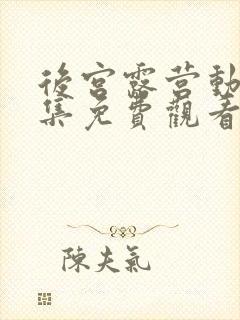 後宮露营動
集免費觀看
陳夫氣